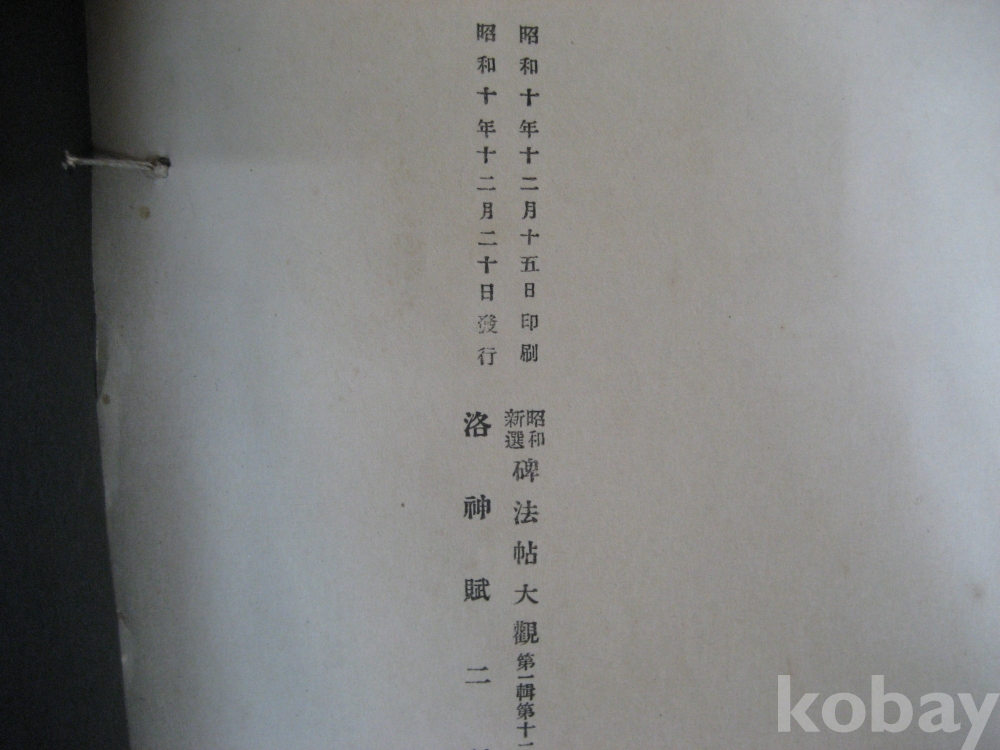 昭和十年十二月十五日印刷
昭和十年十二月二十日發行
昭和新選碑法帖大觀第一輯第十
洛神賦二
kobay